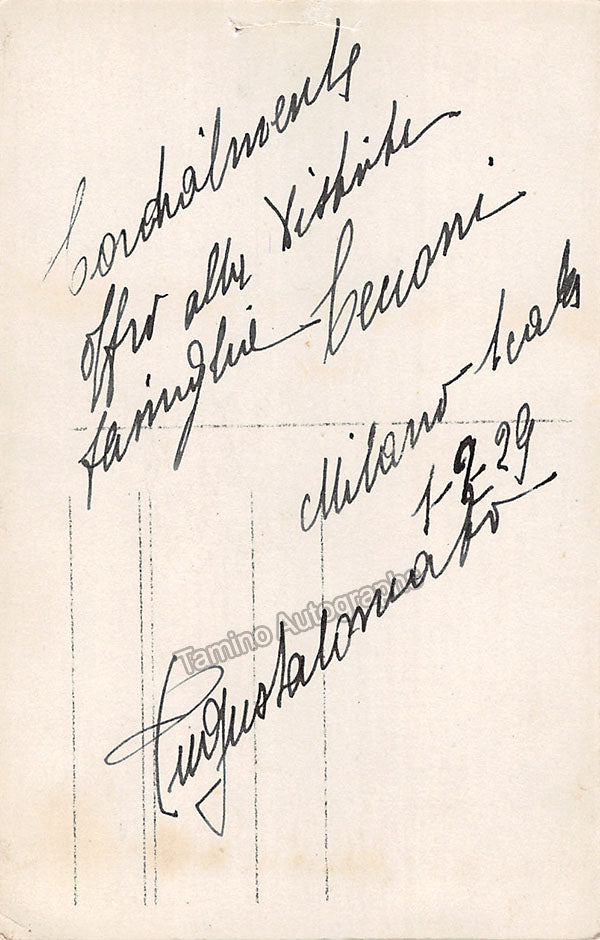 Cordialmente
offro alla distinta
famiglia Ceccani
Milano Scala
1-2-29
Augusta
Tamino Autographs